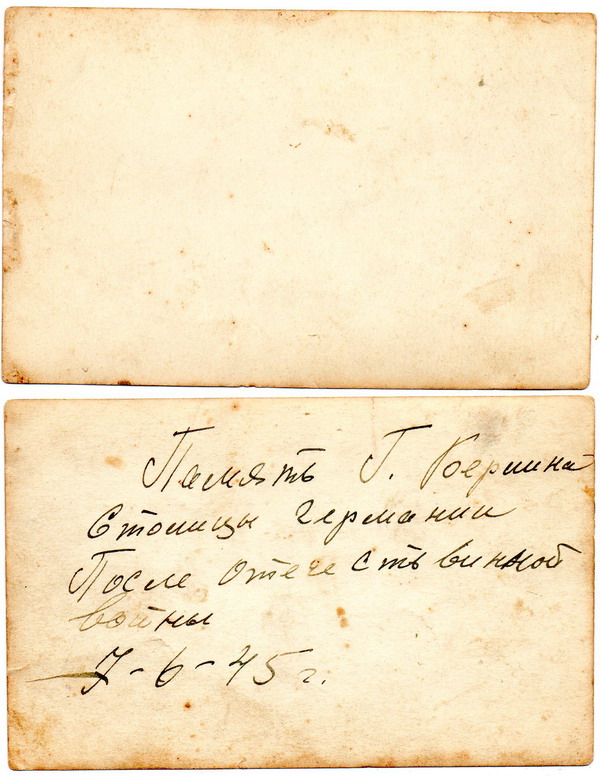 Память Г. Берлина
Столицы Германии
После отече ствинной
войны
7-6-45 г.